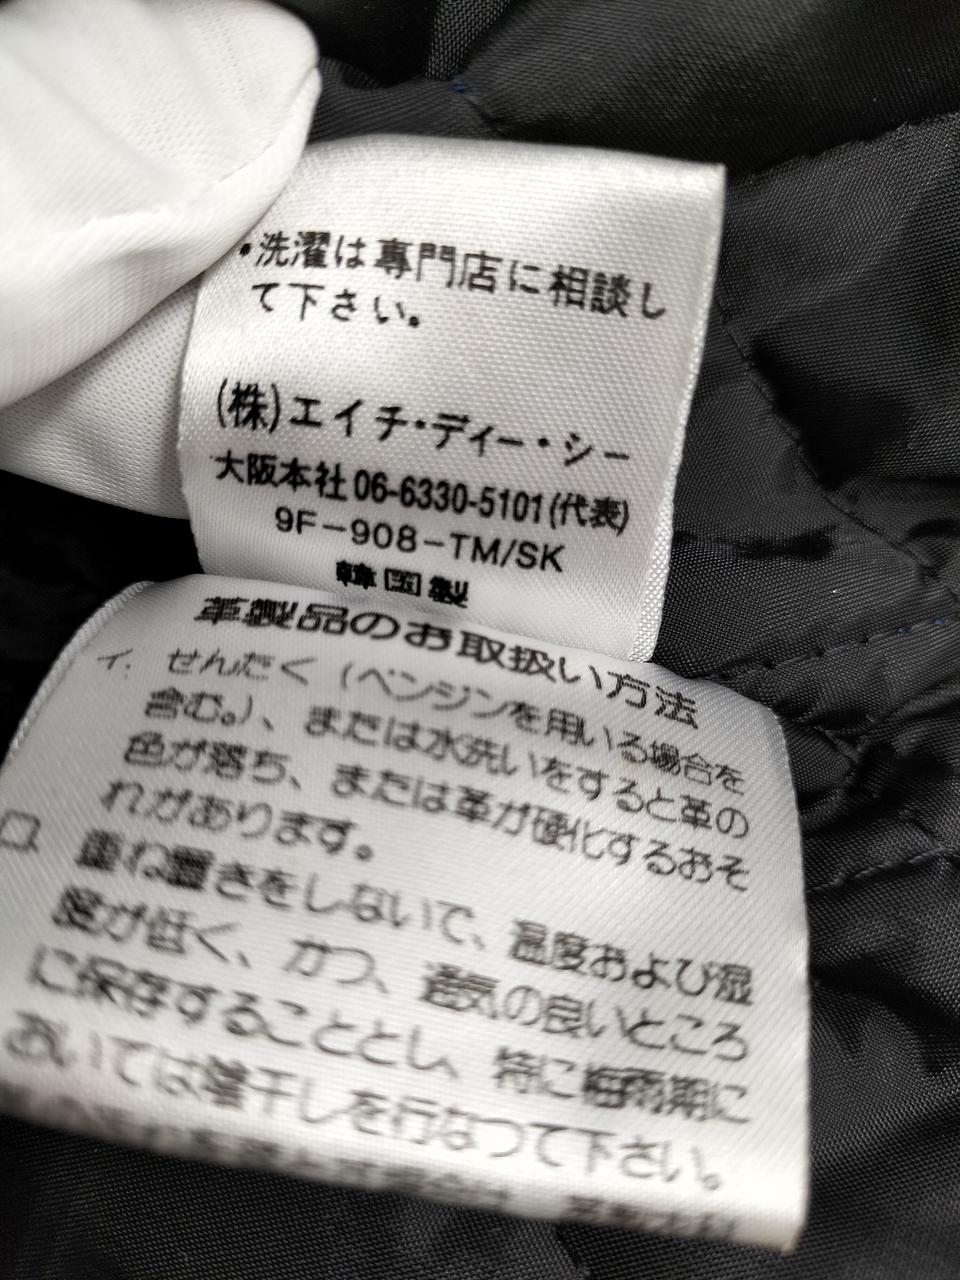 ・洗濯は専門店に相談し
て下さい。
(株)エイチ・ディー・シー
大阪本社 06-6330-5101(代表)
9F-908-TM/SK
韓国製
革製品のお取扱い方法
イ. せんたく(ベンジンを用いる場合を
含む。)、または水洗いをすると革の
色が落ち、または革が硬化するおそ
れがあります。
ロ 重ね置きをしないで、温度および湿
度が低く、かつ、通気の良いところ
に保存することとし、特に梅雨期に
おいては陰干しを行なつて下さい。